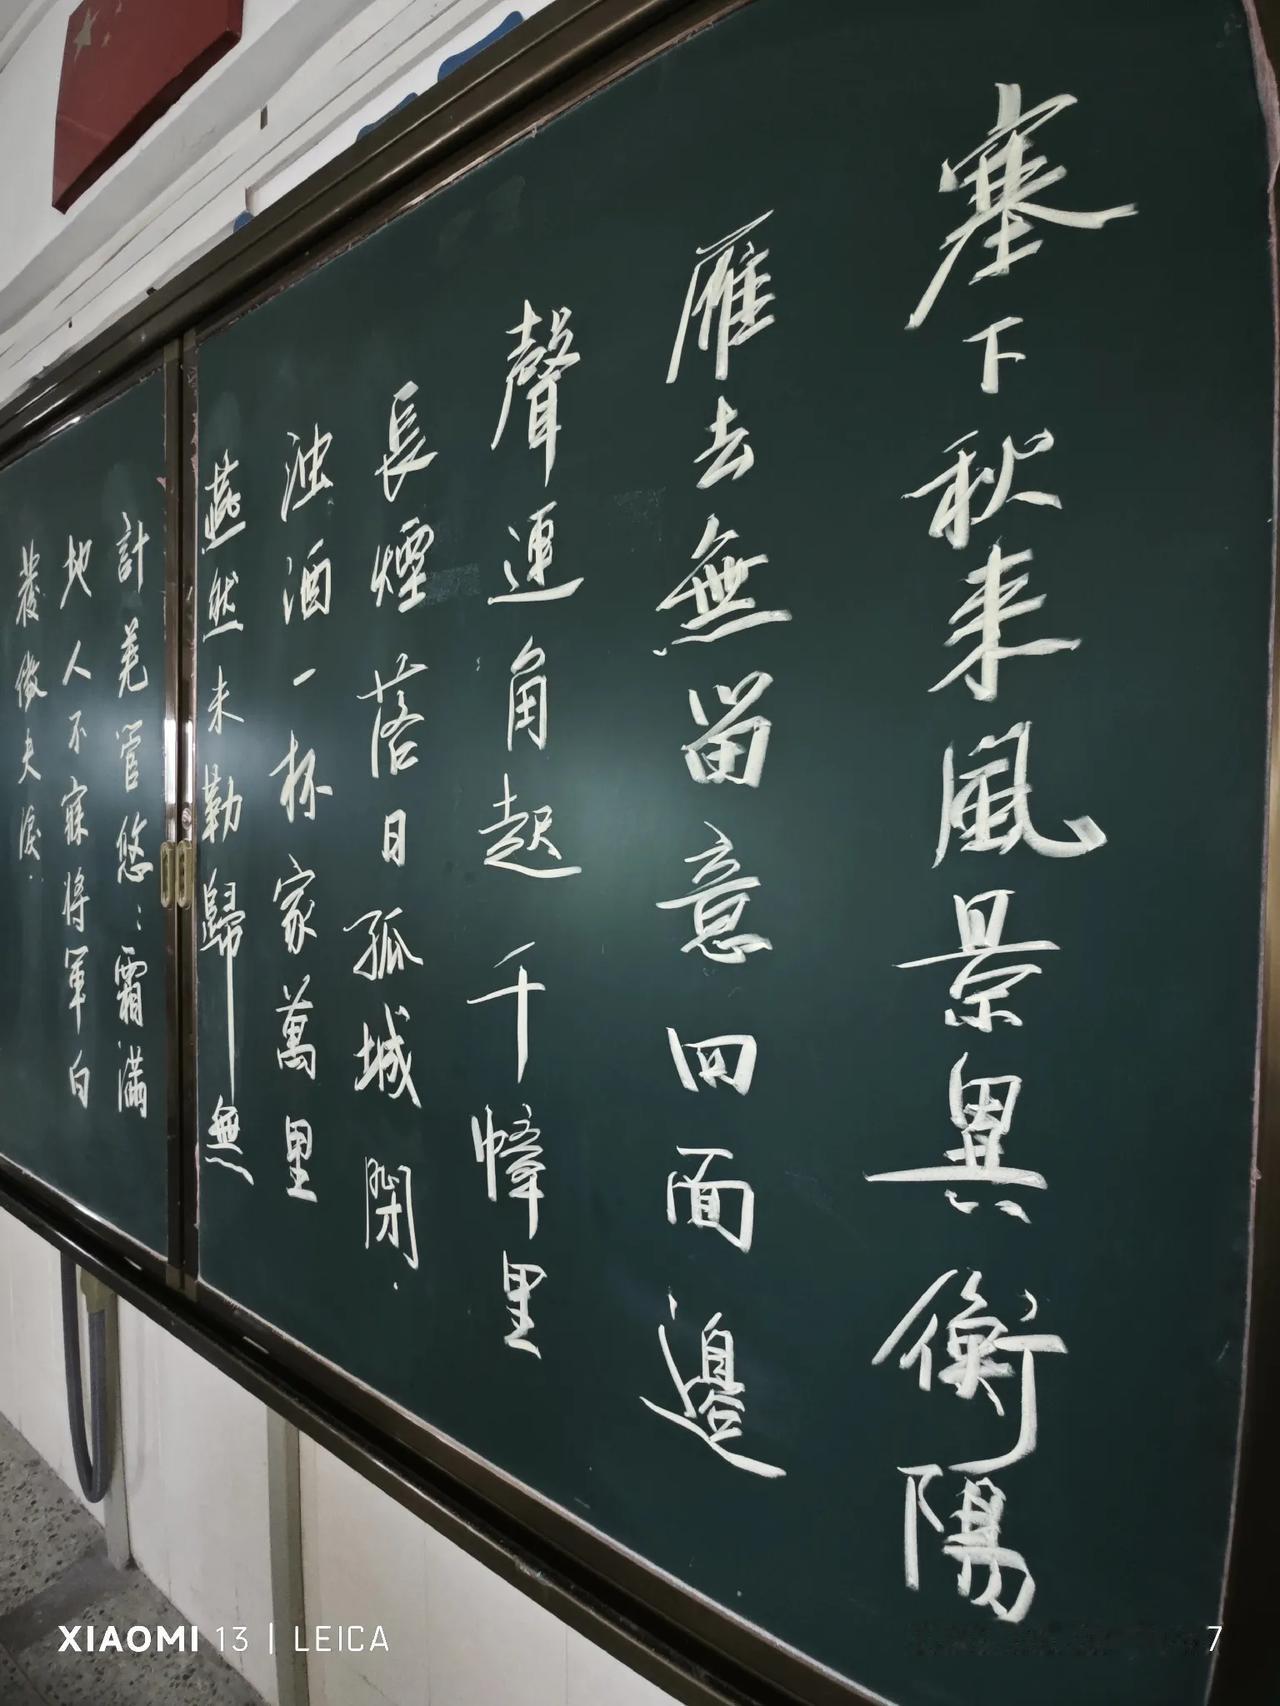 塞下秋来風景異衡陽
雁去無留意四面邊
聲連角起千幛里
長煙落日孤城閉.
浊酒一杯家萬里
燕然未勒歸無
計羌管悠：霜滿
地人不寐将軍白
發徵夫淚.
XIAOMI 13 | LEICA
7